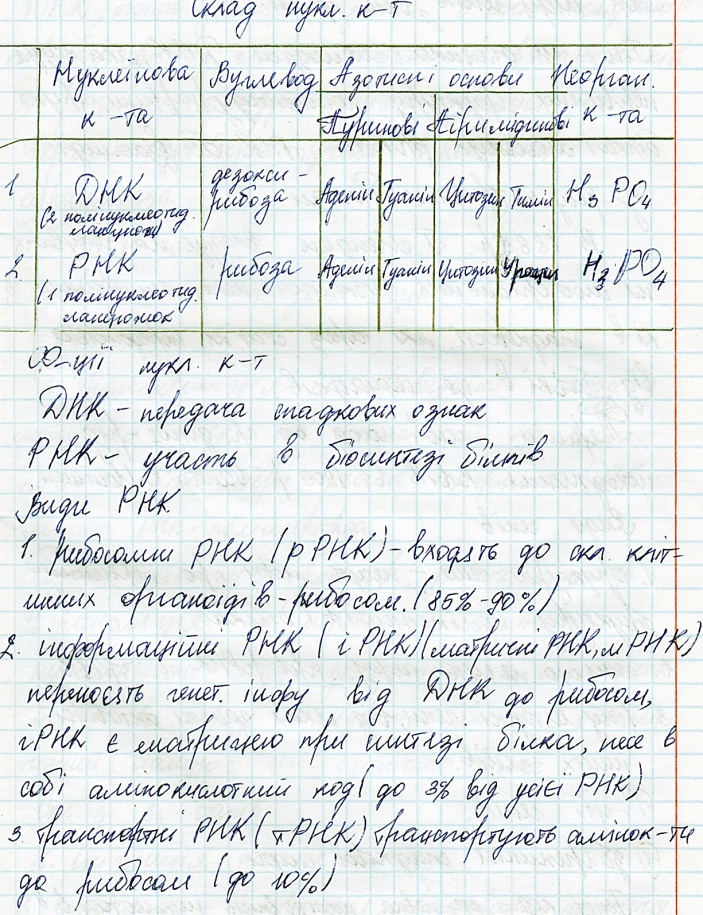 Склад нукл. к-т
Нуклеїнова к-та Вуглевод Азотисті основи Неорган. к-та
Пуринові Піримідинові
1 ДНК дезокси- Аденін Гуанін Цитозин Тимін H3PO4
(2 полінуклеотид. рибоза
ланцюжки)
2. РНК рибоза Аденін Гуанін Цитозин Урацил H3PO4
(1 полінуклеотид.
ланцюжок
Ф-ції нукл. к-т
ДНК - передача спадкових ознак
РНК - участь в біосинтезі білків
Види РНК
1. рибосомні РНК (рРНК) - входять до скл. кліт-
инних органоїдів - рибосом. (85%-90%)
2. інформаційні РНК (іРНК)(матричні РНК, мРНК)
переносять генет. інфру від ДНК до рибосом,
іРНК є матрицею при синтезі білка, несе в
собі амінокислотний код (до 3% від усієї РНК)
3. транспортні РНК (тРНК) транспортують амінок-ти
до рибосом (до 10%)